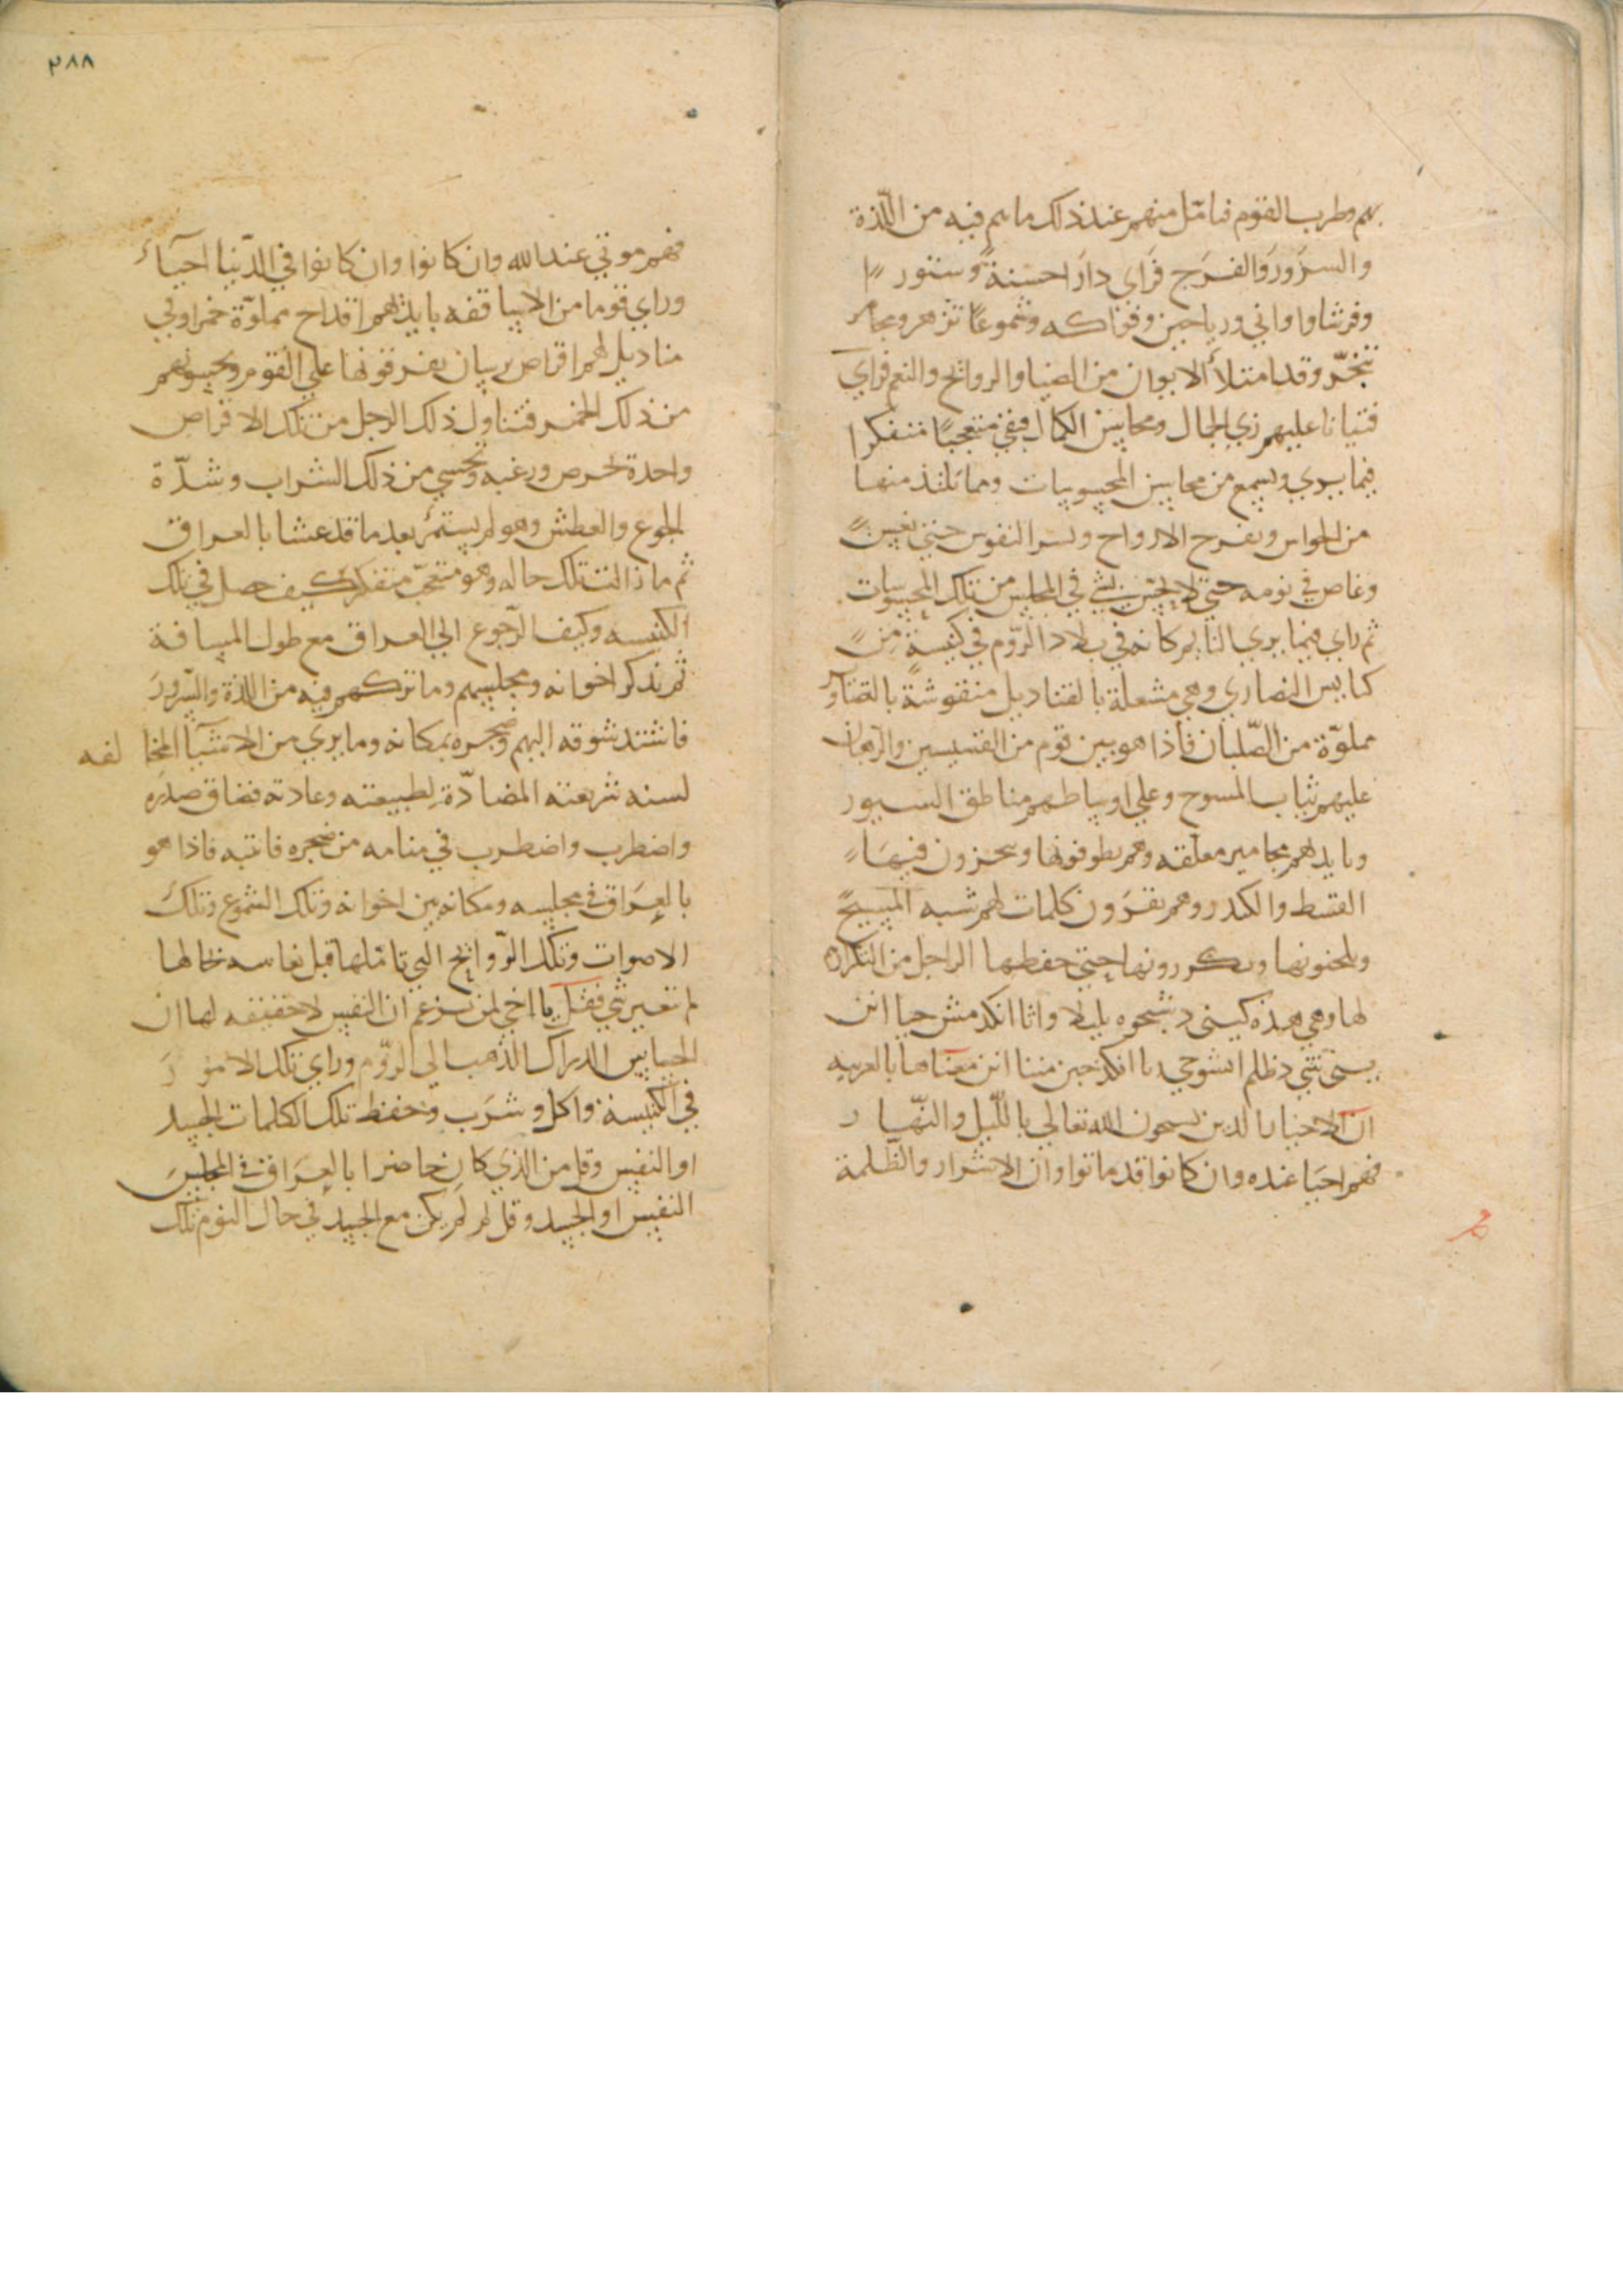 بهم وطرب القوم فتامّل منهم عند ذلك ما هم فيه من اللّذة
والسرور والفرج فراى دارا حسنة وستورا
وفرشا واواني ورياحين وفواكه وشموعا تزهر ومجامر
تبخّر وقد امتلأ الايوان من الضيا والروائح والنعم فراى
فتيانا عليهم زي الجمال ومحاسن الكمال فبقي متعجبا متفكرا
فيما يرى ويسمع من محاسن المحسوسات وما تلتذ منها
من الحواس وتفرح الارواح وتسر النفوس حتى نعس
وغاص في نومه حتى لا يحس بشي في المجلس من تلك المحسوسات
ثم راى فيما يرى النايم كانه في بلاد الرّوم في كنيسة من
كنايس النصارى وهي مشعلة بالقناديل منقوشة بالتصاوير
مملوّة من الصّلبان فاذا هو بين قوم من القسيسين والرهبان
عليهم ثياب المسوح وعلى اوساطهم مناطق السيور
وبايديهم مجامير معلقه وهم يطوفونها ويبخرون فيها
القسط والكندر وهم يقرون كلمات لهم شبه المسيح
ويلحنونها ويكررونها حتى حفظها الراجل من التكرار
لها وهي هذه
معناها بالعربيه
ان الاخيار الذين يسبحون الله تعالى بالّليل والنّهار
فهم احيا عنده وان كانوا قد ماتوا وان الاشرار والظّلمة
٢٨٨
فهم موتي عند الله وان كانوا وان كانوا في الدّنيا احياء
وراي قوما من الاساقفه بايديهم اقداح مملوّة خمرا وفي
مناديل لهم اقراص يفرقونها على القوم ويحسونهم
من ذلك الخمر فتناول ذلك الرجل من تلك الاقراص
واحدة لحرص ورغبه وتحسي من ذلك الشراب وشدّة
الجوع والعطش وهو لم يستمر بعد ما قد عشا بالعراق
ثم ما زالت تلك حاله وهو متعجّب متفكر كيف حصل في تلك
الكنيسه وكيف الرّجوع الي العراق مع طول المسافة
ثم تذكر اخوانه ومجلسهم وما تركهم فيه من اللذة والسّرور
فاشتد شوقه اليهم وضجره بمكانه وما يرى من الاشيا المخالفه
لسنه شريعته المضادّة لطبيعته وعادته فضاق صدره
واضطرب واضطرب في منامه من ضجره فانتبه فاذا هو
بالعراق في مجلسه ومكانه بين اخوانه وتلك الشموع وتلك
الاصوات وتلك الرّوائح التي تامّلها قبل نعاسه بحالها
لم تغير شي فقل يا اخي لمن يزعم ان النفس لا حقيقه لها ان
الحساس الدراك الذهب الى الرّوم وراي تلك الامور
في الكنيسة واكل وشرب وحفظ تلك الكلمات الجسد
او النفس وقل من الذي كان حاضرا بالعراق في المجلس
النفس او الجسد وقل لم لم يكن مع الجسد في حال النوم تلك